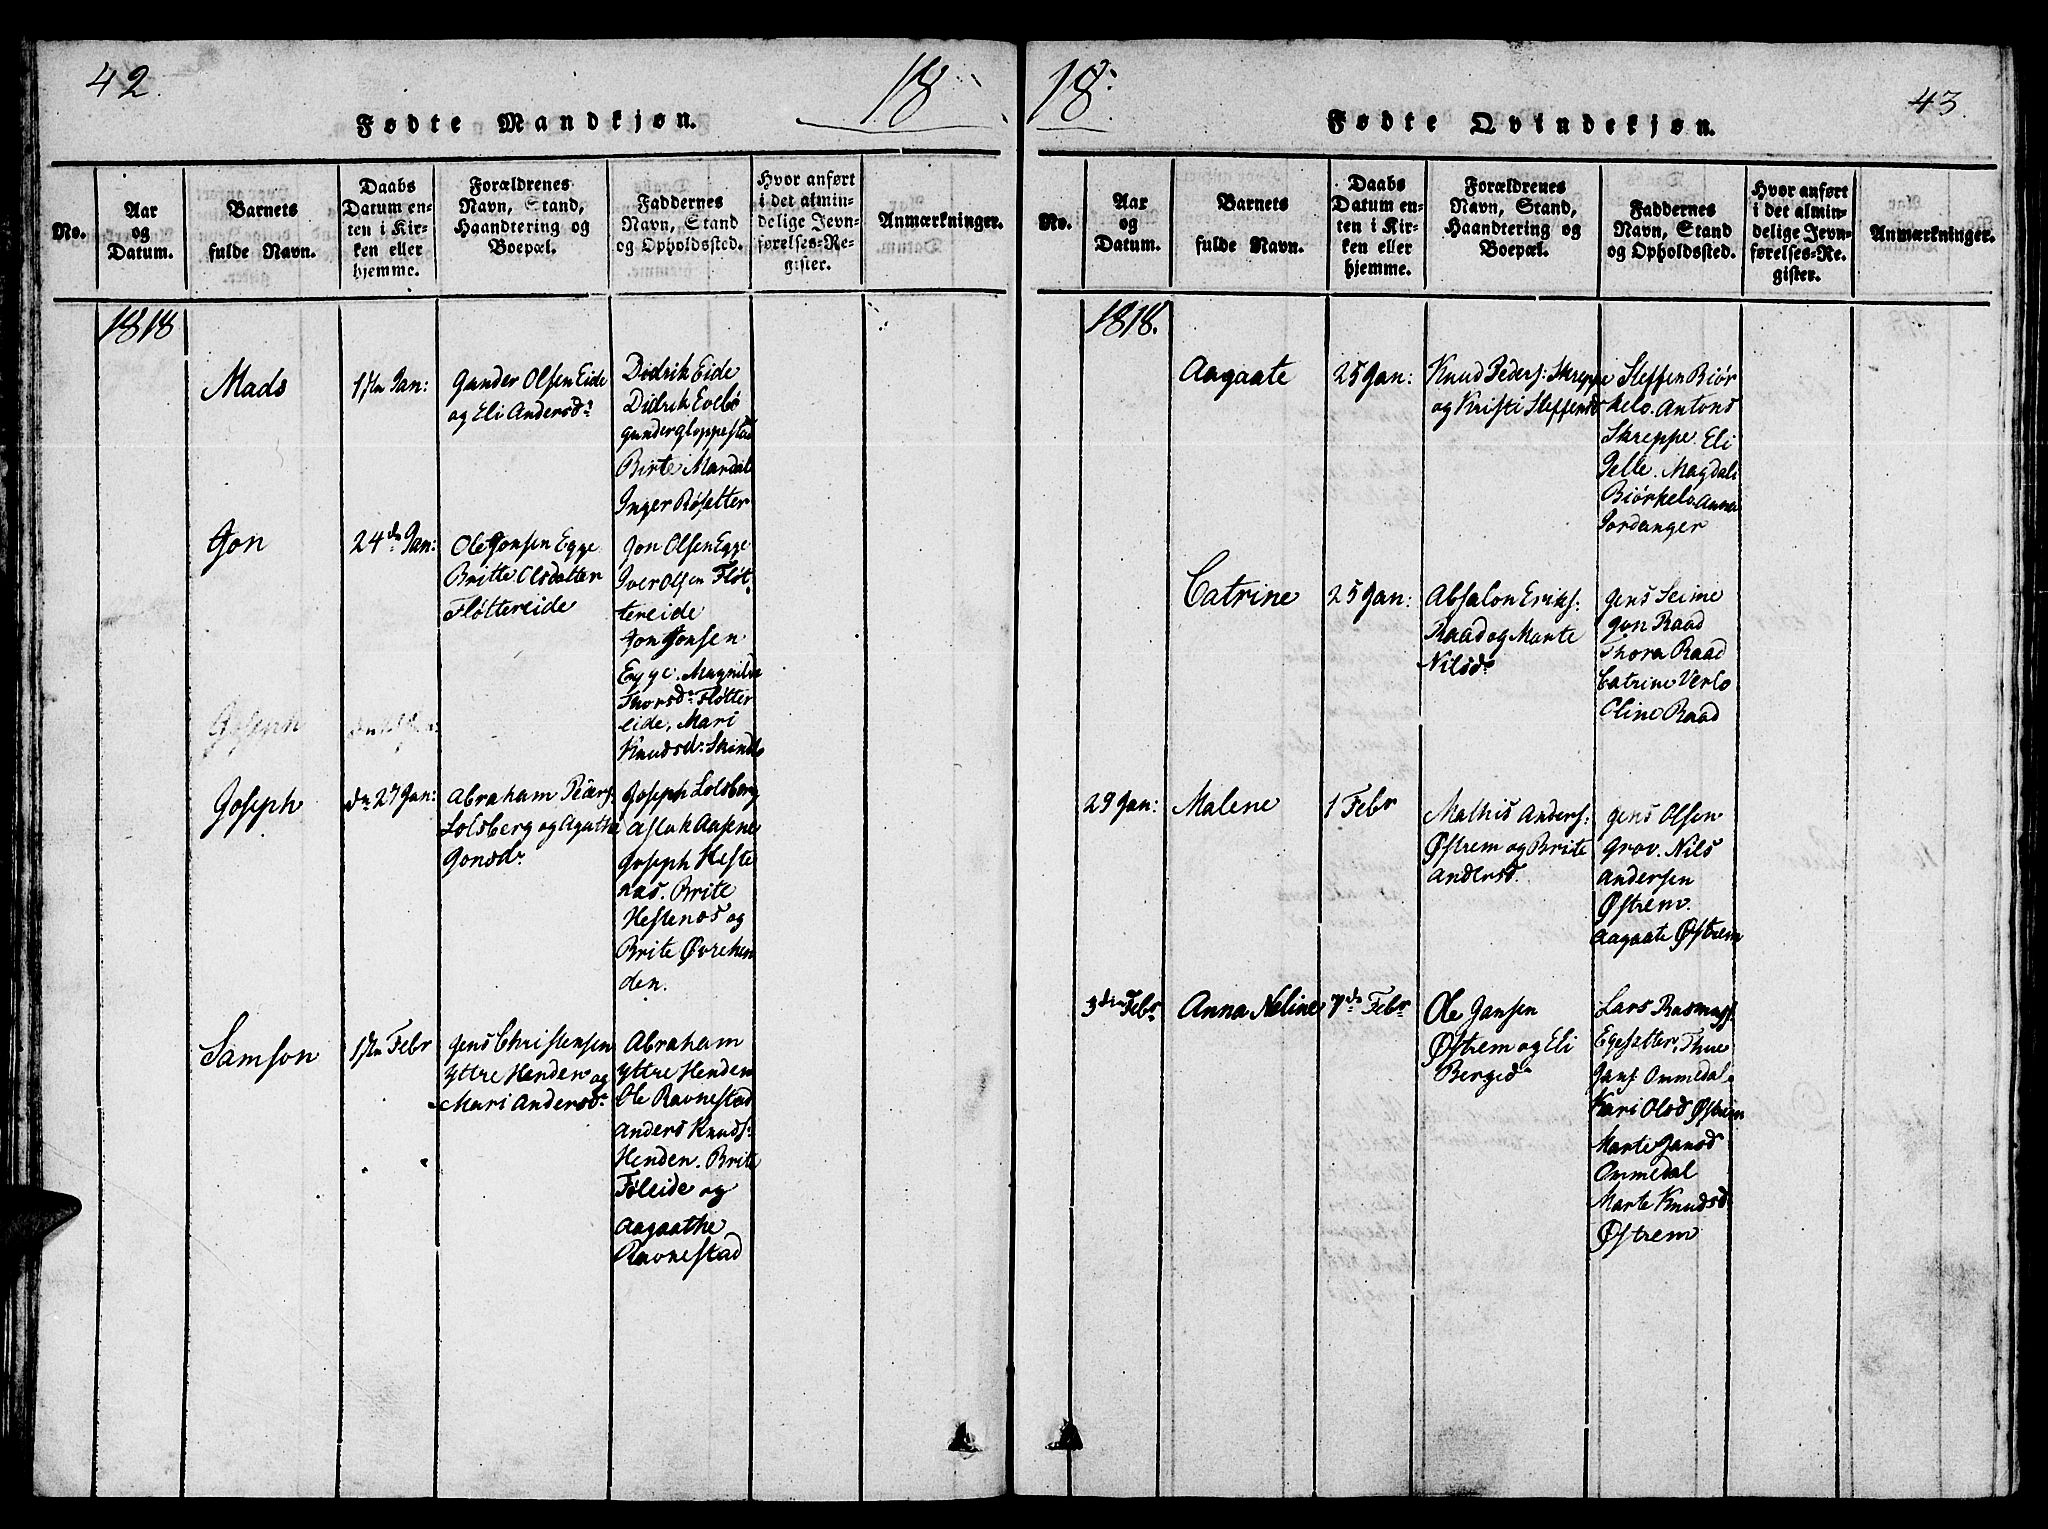 42.
18
Fødte Mandkjøn.
No.
Aar
og
Datum.
Barnets
fulde Navn.
Daabs
Datum en-
ten i Kir-
ken eller
hjemme.
Forældrenes
Navn, Stand,
Haandtering og
Boepæl.
Faddernes
Navn, Stand
og Opholdssted.
Hvor anført
i det almin-
delige Jevn-
førelses-Re-
gister.
Anmærkninger.
1818
Mads
1ste Jan:
Gunder Olsen Eide
og Eli Andersdr
Didrik Eide
Didrik Evebø
Gunder Gloppestad
Birte Mardal
Inger Røsetter
Jon
24de Jan:
Ole Jonsen Egge
Britte Olsdatter
Fløttereide
Jon Olsen Egge
Iver Olsen Fløt
tereide
Jon Jonsen
Egge. Magnilde
Thorsdr Fløtter
eide, Mari
Knudsdr: Skinlo
Joseph
Joseph
dn 27 Jan:
Abraham Peders:
Solsberg og Agathe
Jonsdr
Joseph Solsberg
Aslak Aasene
Joseph Heste
næs. Brite
Hestenes og
Brite Øvrehen
den.
Samson
1ste Febr
Jens Christensen
Yttre Henden og
Mari Andersdr
Abraham
Yttre Henden
Ole Ravnestad
Anders Knuds:
Henden. Brite
Føleide og
Aagaathe
Ravnestad
18
43.
Fødte Qvindekjøn.
No.
Aar
og
Datum.
Barnets
fulde Navn.
Daabs
Datum en-
ten i Kir-
ken eller
hjemme.
Forældrenes
Navn, Stand,
Haandtering og
Boepæl.
Faddernes
Navn, Stand
og Opholdssted.
Hvor anført
i det almin-
delige Jevn-
førelses-Re-
gister.
Anmærkninger.
1818.
Aagaate
25 Jan:
Knud Peders: Skreppe
og Kristi Steffensd
Steffen Biør
kelo. Antons
Skreppe. Eli
Pelle. Magdali
Biørkelo Anna
Jordanger
Catrine
25 Jan:
Absalon Eriks:
Raad og Marte
Nilsdr
Jens Seime
Jon Raad
Thora Raad
Catrine Verlo
Cline Raad
29 Jan:
Malene
1 Febr
Mathis Anders:
Østrem og Brite
Andersd.
Jens Olsen
Grov. Nils
Andersen
Østrem.
Aagaate Østrem
3den Febr
Anna Neline
7de Febr
Ole Jansen
Østrem og Eli
Bergedr
Lars Rasmuss.
Egesetter, Thue
Jans. Ommedal.
Kari Olsd Østrem
Marte Jansd
Ommedal
Marte Knudsd
Østrem